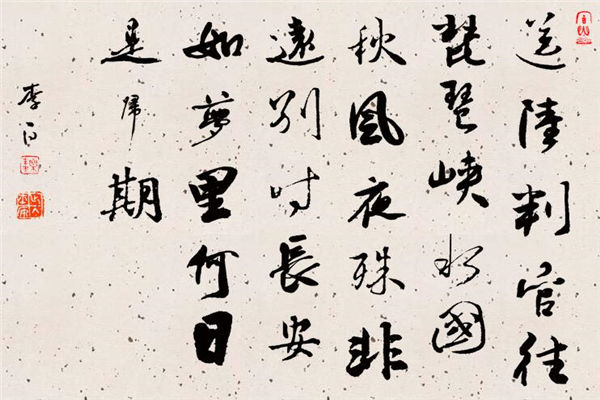 送陸判官往
琵琶峽水國
秋風夜殊非
遠別时長安
如夢里何日
是歸期
李白